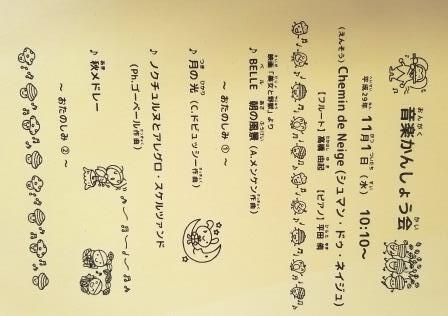 音楽かんしょう会
平成29年 11月1日（水） 10:10～
（えんそう）Chemin de Neige（シュマン・ドゥ・ネイジュ）
【フルート】高橋 由起 【ピアノ】平田 侑
♪ 映画「美女と野獣」より
BELLE 朝の風景（A.メンケン作曲）
～ おたのしみ ① ～
♪ 月の光（C.ドビュッシー作曲）
♪ ノクチュルヌとアレグロ・スケルツァンド
（Ph.ゴーベール作曲）
♪ 秋メドレー
～ おたのしみ ② ～